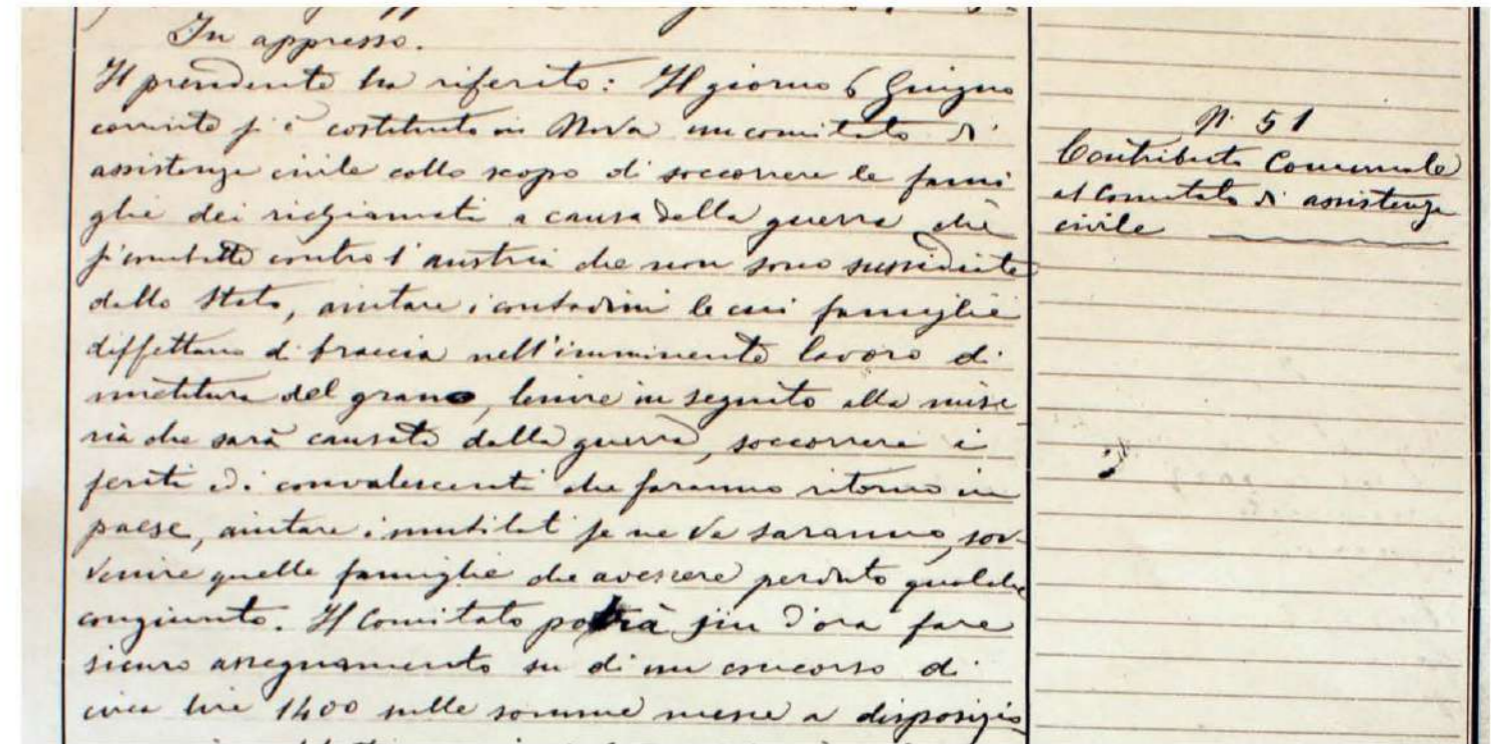 In appresso.
Il presidente ha riferito: Il giorno 6 Giugno
corrente si è costituito in Nova un comitato di
assistenza civile collo scopo di soccorrere le fami
glie dei richiamati a causa della guerra che
si combatte contro l'austria che non sono sussidiate
dallo Stato, aiutare i contadini le cui famiglie
diffettano di braccia nell'imminente lavoro di
mietitura del grano, lenire in seguito alla mise
ria che sarà causata dalla guerra, soccorrere i
feriti ed i convalescenti che faranno ritorno in
paese, aiutare i mutilati se ve ne saranno, sov
venire quelle famiglie che avessero perduto qualche
congiunto. Il Comitato potrà fin d'ora fare
sicuro assegnamento su di un concorso di
circa lire 1400 sulle somme messe a disposizio
N. 51
Contributo Comunale
al Comitato di assistenza
civile